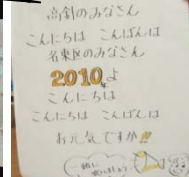 高針のみなさん
こんにちは こんばんは
名東区のみなさん
2010年よ
こんにちは
こんにちは こんばんは
お元気ですか!!
一緒に